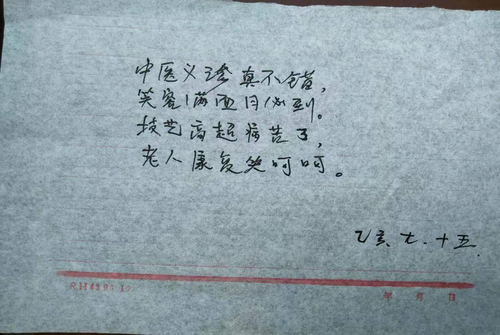 中医义诊真不错,
笑容满面日必到。
技艺高超病苦了,
老人康复笑呵呵。
乙亥.七.十五.
年 月 日